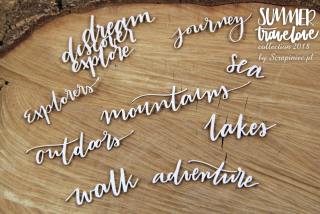 dream
discover
explore
journey
SUMMER
travelove
collection 2018
by Scrapiniec.pl
sea
Explorers
mountains
lakes
outdoors
walk
adventure